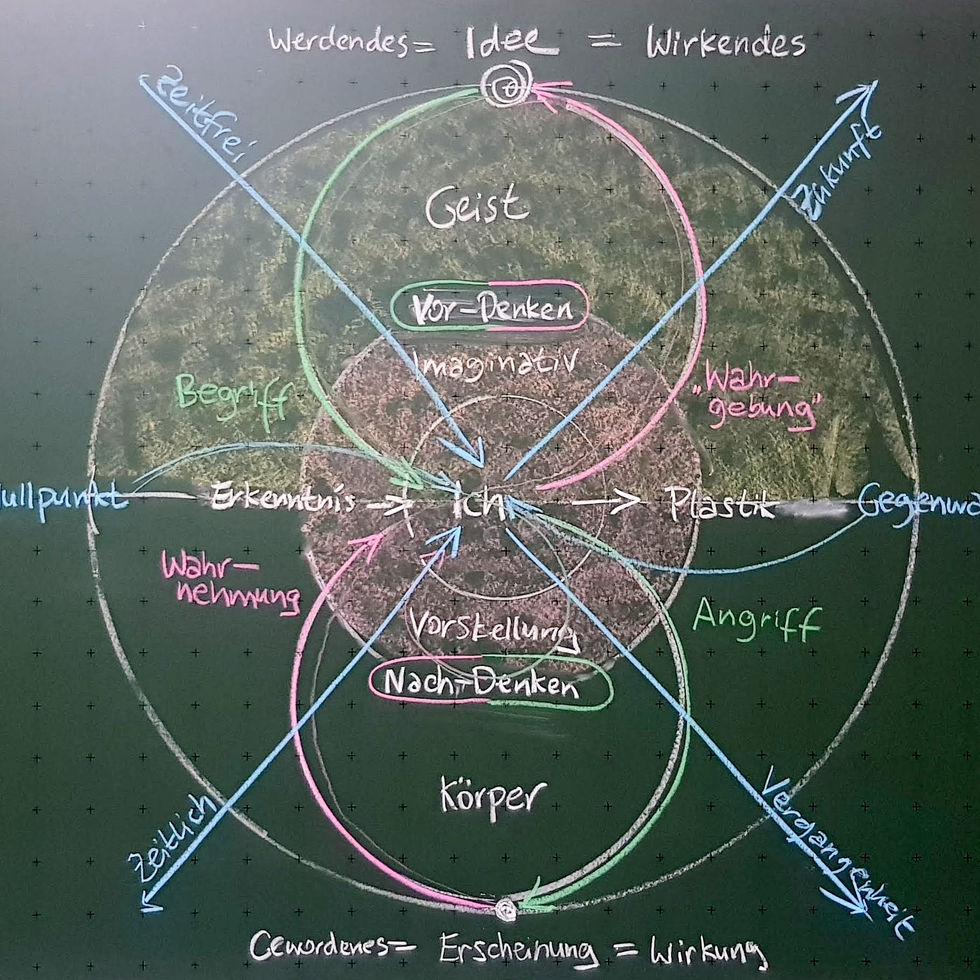 Werdendes = Idee = Wirkendes
Zeitfrei
Zukunft
Geist
Vor-Denken
Imaginativ
Begriff
„Wahr-
gebung"
ullpunkt
Erkenntnis
Ich
Plastik
Gegenwa
Wahr-
nehmung
Angriff
Vorstellung
Nach-Denken
Körper
Zeitlich
Vergangenheit
Gewordenes = Erscheinung = Wirkung